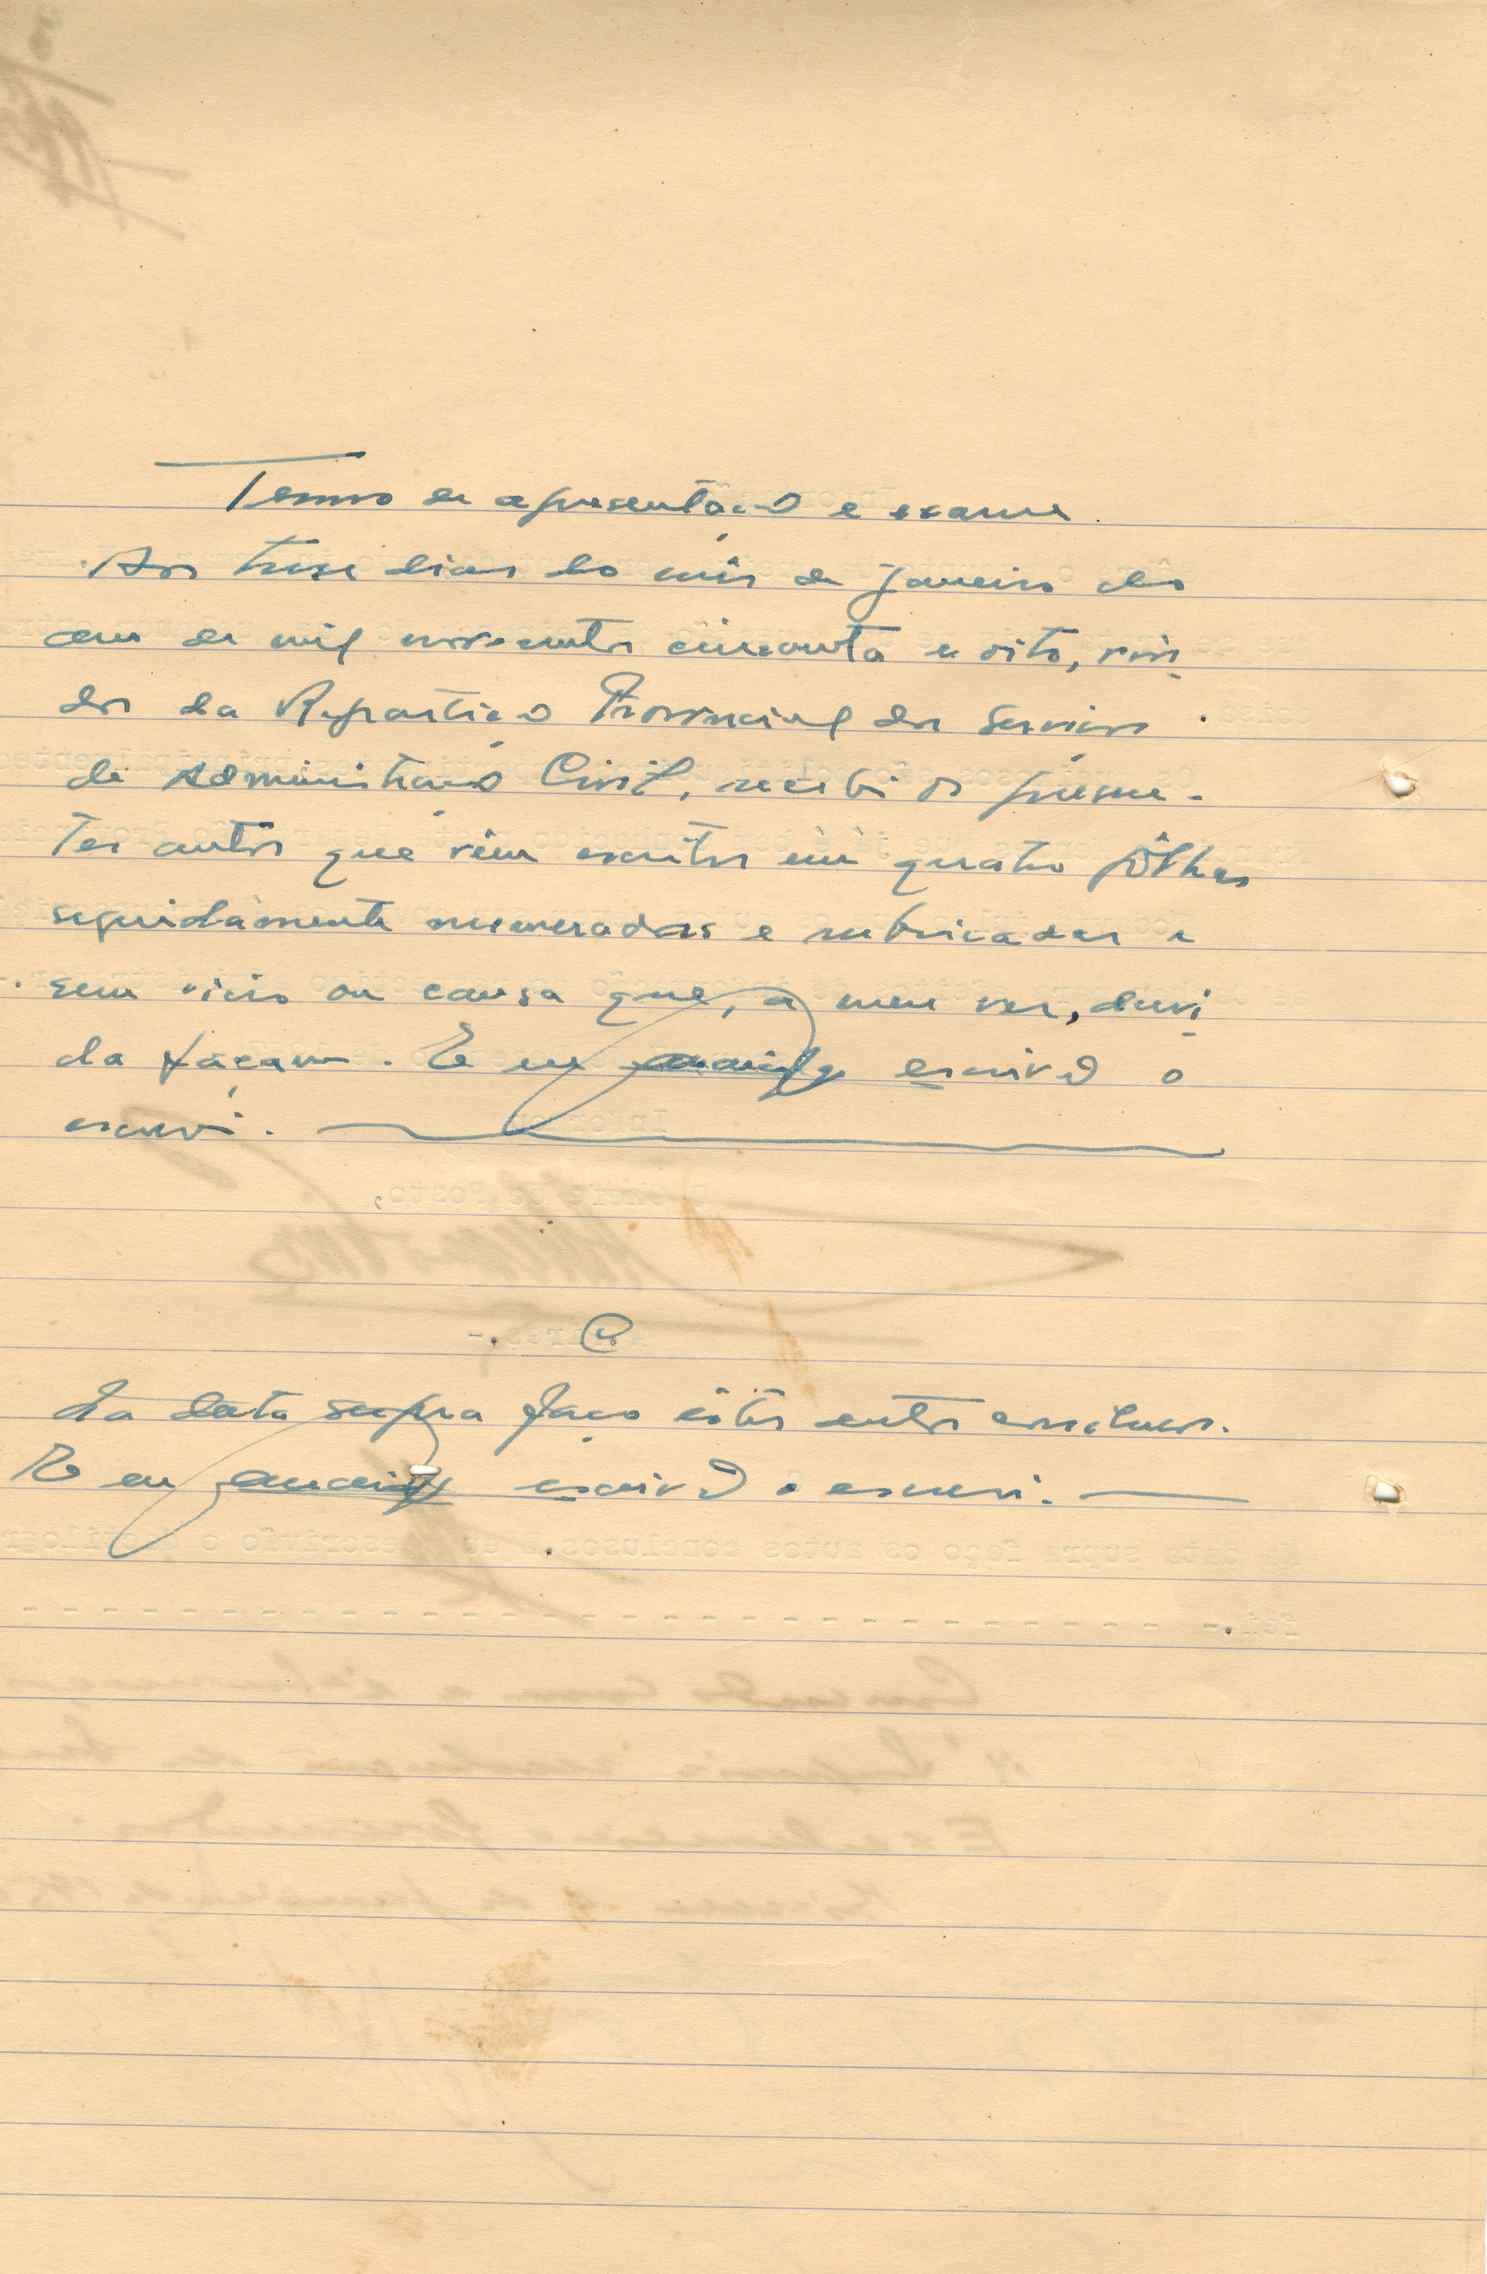 Termo de apresentação e exame.
Aos treze dias do mês de Janeiro do
ano de mil novecentos cincoenta e oito, vin-
dos da Repartição Provincial dos Serviços
de Administração Civil, recebi os presen-
tes autos que vêm escritos em quatro fôlhas
seguidamente numeradas e rubricadas e
sem vicio ou causa que, a meu ver, duvi-
da façam. E eu escrivão o
escrevi.
Na data supra faço êstes autos conclusos.
E eu escrivão o escrevi.